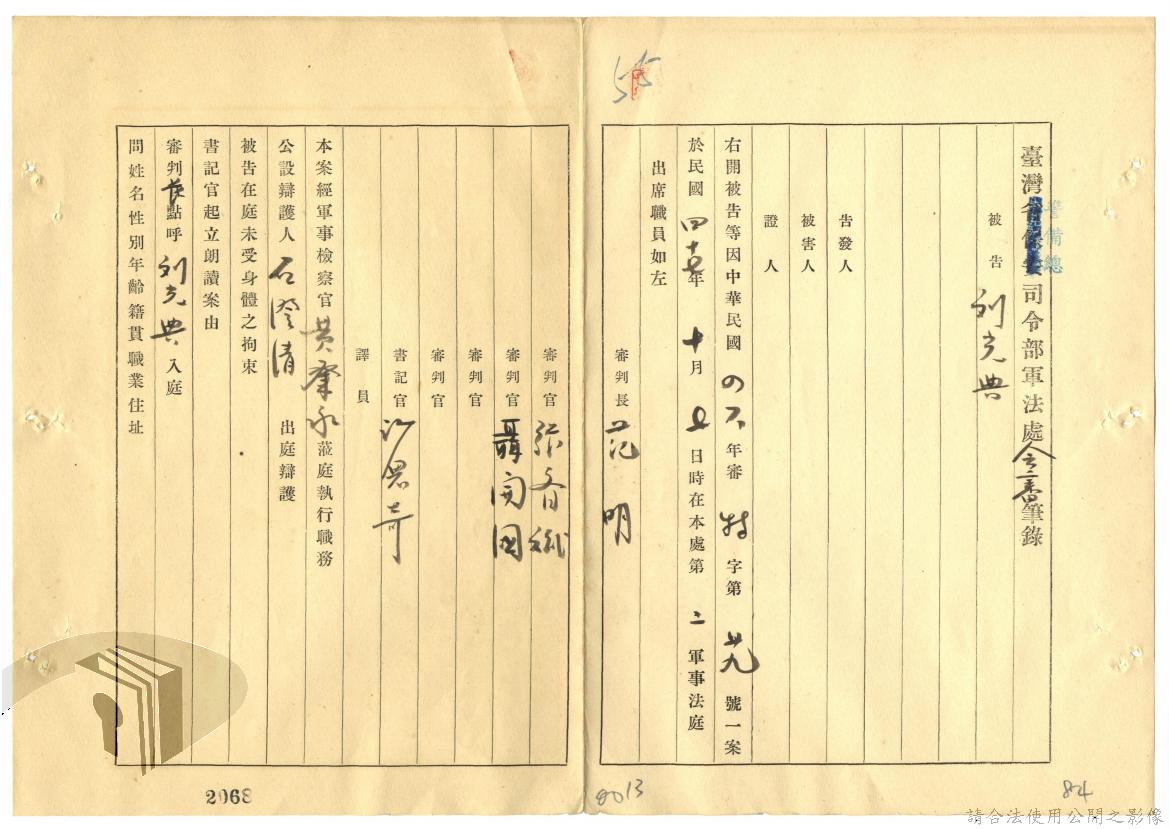 臺灣警備總司令部軍法處合審筆錄
被告 劉光典
告發人
被害人
證人
右開被告等因中華民國四六年審特字第廿九號一案
於民國四十七年十月七日時在本處第二軍事法庭
出席職員如左
審判長 范明
審判官
審判官 聶開國
審判官
審判官
書記官
譯員
本案經軍事檢察官 蒞庭執行職務
公設辯護人 石澄清 出庭辯護
被告在庭未受身體之拘束
書記官起立朗讀案由
審判長點呼 劉光典 入庭
問姓名性別年齡籍貫職業住址
55
84
8013
2068
請合法使用公開之影像